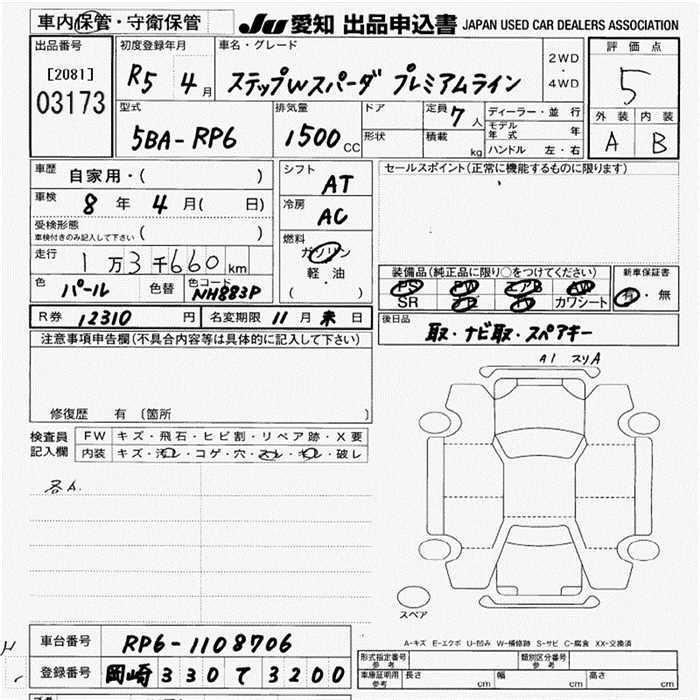 車内保管・守衛保管
JU 愛知 出品申込書 JAPAN USED CAR DEALERS ASSOCIATION
出品番号
[2081]
03173
初度登録年月
R5 4月
車名・グレード
ステップWスパーダ プレミアムライン
2WD
・
4WD
評価点
5
外装 内装
A B
型式
5BA-RP6
排気量
1500cc
ドア
形状
定員 7人
積載 kg
ディーラー・並行
モデル年式 年
ハンドル 左・右
車歴
自家用・( )
車検
8年4月( 日)
受検形態
車検付きのみ記入して下さい ( )
走行
1万3千660km
色
パール
色替
色コード
NH883P
シフト
AT
冷房
AC
燃料
ガソリン
軽・油
( )
セールスポイント(正常に機能するものに限ります)
装備品(純正品に限り○をつけてください)
PS PW エアB AW
SR ナビ TV カワシート
新車保証書
有・無
R券 12310円 名変期限 11月末日
後日品
取・ナビ取・スペアキー
注意事項申告欄(不具合内容等は具体的に記入して下さい)
修復歴 有 〔箇所 〕
検査員
記入欄
FW キズ・飛石・ヒビ割・リペア跡・X要
内装 キズ・汚レ・コゲ・穴・スレ・キレ・破レ
A1 スリA
スペア
A-キズ E-エクボ U-凹み W-補修跡 S-サビ C-腐食 XX-交換済
車台番号 RP6-1108706
登録番号 岡崎 330 て 3200
形式指定番号
参考
類別区分番号
参考
車庫証明用
参考
長さ cm 幅 cm 高さ cm